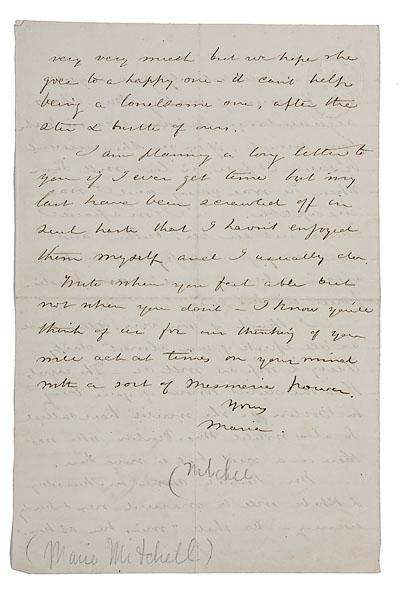 very very much but we hope she
goes to a happy one - it can't help
being a lonesome one, after the
stir & bustle of ours.
I am planning a long letter to
you if I ever get time but my
last have been scrawled off in
such haste that I havn't enjoyed
them myself and I usually do.
Write when you feel able but
not when you don't - I know you'll
think of us for our thinking of you
will act at times on your mind
with a sort of Mesmeric power.
Yours
Maria.
(Mitchell
(Maria Mitchell)